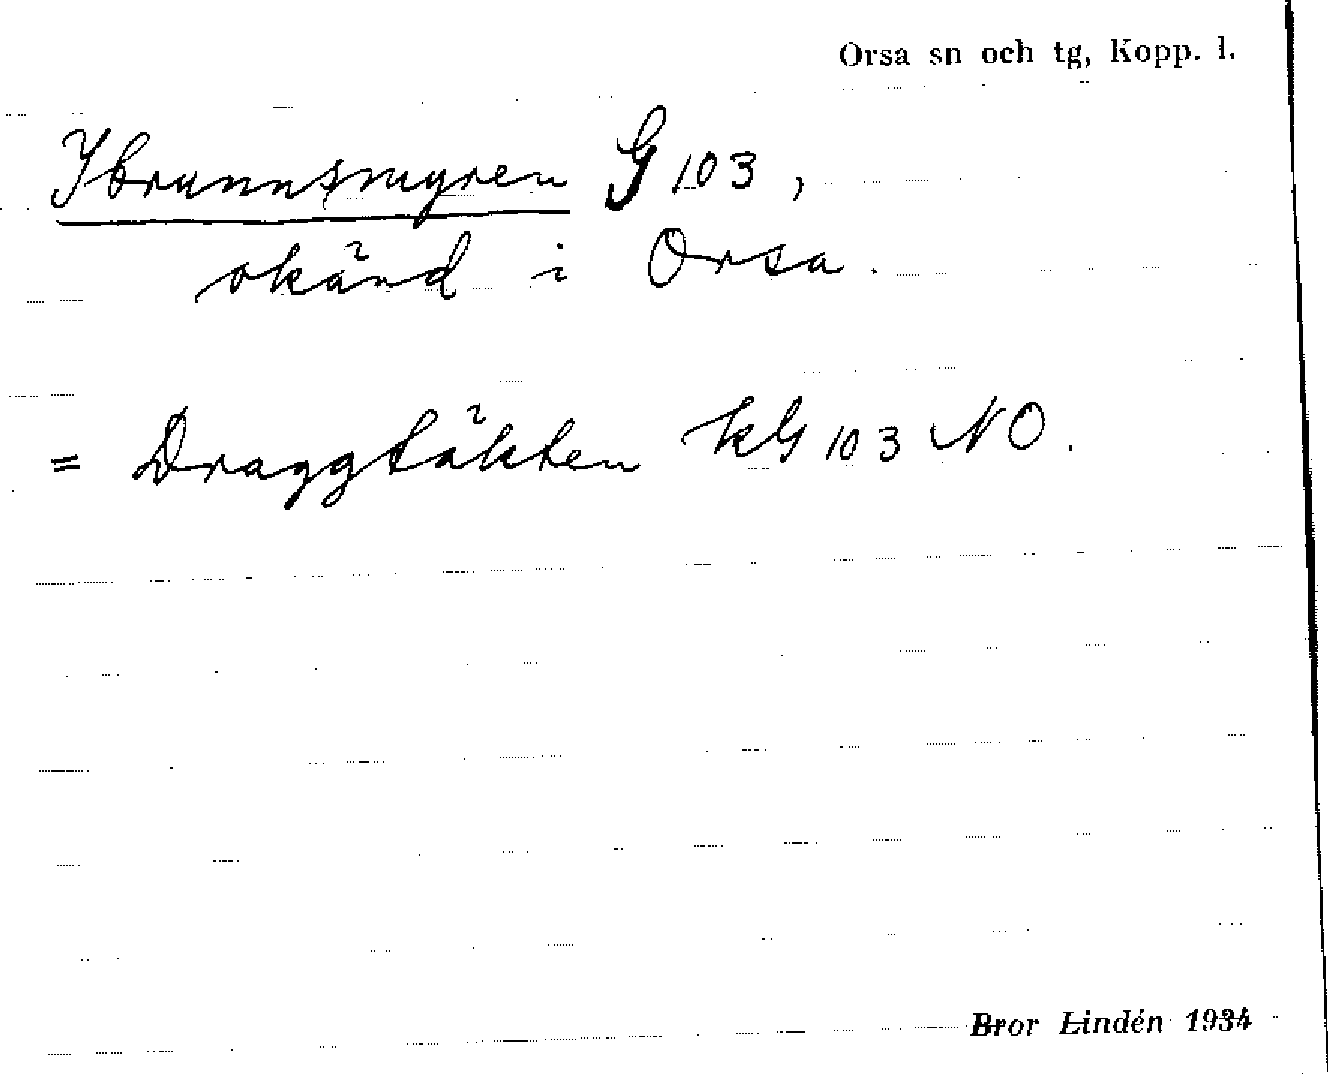 Orsa sn och tg, Kopp. l.
Ybrunnsmyren G 103,
okänd i Orsa.
= Draggtäkten kG 103 NO.
Bror Lindén 1934